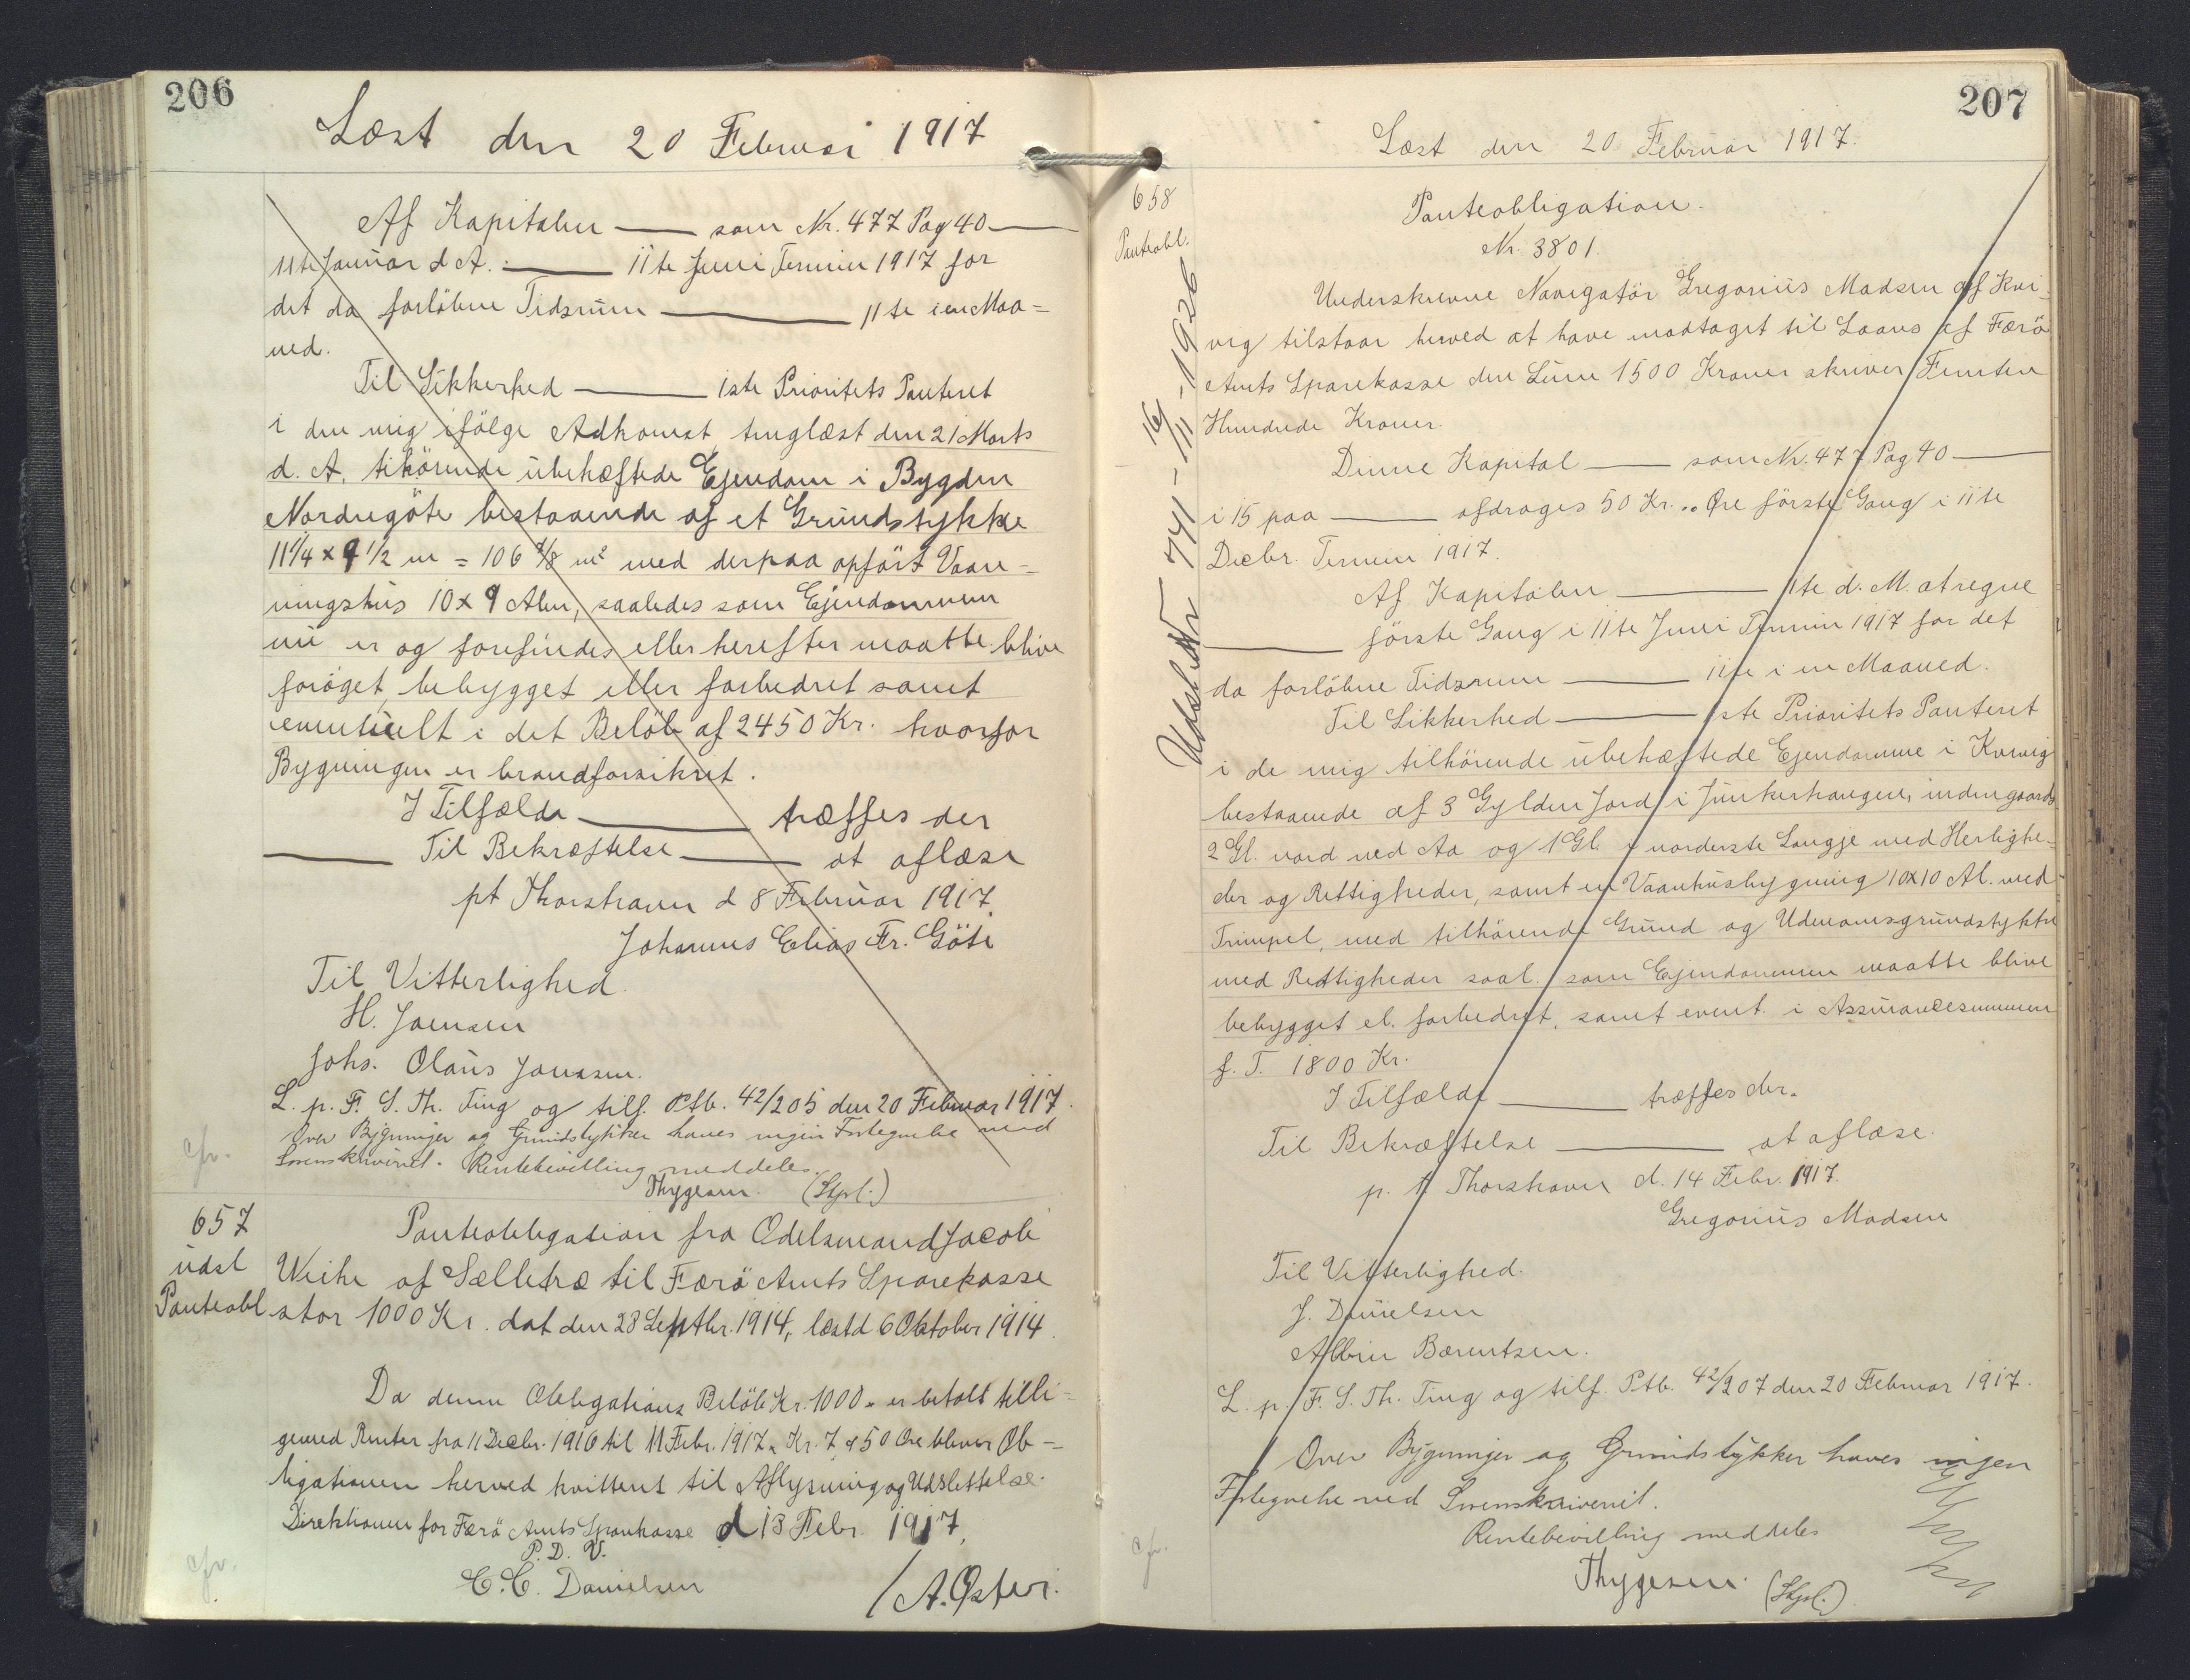 206
Læst den 20 Februar 1917
Af Kapitalen — som Nr. 477 Pag 40 —
11te Januar d A. — 11te Juni Termin 1917 for
det da forløbne Tidsrum — 11te i en Maa=
ned.
Til Sikkerhed — 1ste Prioritets Panteret
i den mig ifölge Adkomst tinglæst den 21 Marts
d. A. tilhörende übehæftede Ejendom i Bygden
Nordregöte bestaaende af et Grundstykke
11 1/4 x 9 1/2 m = 106 7/8 m² med derpaa opfört Vaan-
ningshus 10 x 9 Alen, saaledes som Ejendommen
nu er og forefindes eller herefter maatte blive
foröget, bebygget eller forbedret samt
eventuelt i det Belöb af 2450 Kr. hvorfor
Bygningen er brandforsikret.
I Tilfælde — træffes der
— Til Bekræftelse — at aflæse
pt Thorshavn d 8 Februar 1917.
Johannes Elias Fr. Göte
Til Vitterlighed.
H. Joensen
Johs. Olaus Joensen.
L. p. F. S. Th. Ting og tilf. Ptb. 42/205 den 20 Februar 1917.
Over Bygninger og Grundstykker haves ingen Fortegnelse ved
Sorenskriveriet. Rentebevilling meddeles.
cfr.
Thygesen. (Stpl.)
657
udsl
Panteobl
Panteobligation fra Odelsmand Jacob
Weihe af Sælletræ til Færö Amts Sparekasse
stor 1000 Kr. dat den 28 Septbr. 1914, læst d 6 Oktober 1914.
Da denne Obligations Belöb Kr. 1000 „ er betalt tilli-
gemed Renter fra 11 Decbr. 1916 til 11 Febr. 1917 „ Kr. 7 „ 50 Øre bliver Ob-
ligationen herved kvitteret til Aflysning og Udslettelse.
Direktionen for Færö Amts Sparekasse d 13 Febr. 1917.
P. D. V.
cfr.
C. C. Danielsen / A. Oster.
207
Læst den 20 Februar 1917.
658
Panteobl.
Udslettet Nr 741 - 16/11 - 1926
Panteobligation.
Nr. 3801.
Underskrevne Navigatör Gregorius Madsen af Kvi-
vig tilstaar herved at have modtaget til Laans af Færö
Amts Sparekasse den Sum 1500 Kroner skriver Femten
Hundrede Kroner.
Denne Kapital — som Nr. 477 Pag 40 —
i 15 paa — afdrages 50 Kr. „ Øre förste Gang i 11te
Decbr. Termin 1917.
Af Kapitalen — 11te d. M. at regne
— förste Gang i 11te Juni Termin 1917 for det
da forløbne Tidsrum — 11te i en Maaned.
Til Sikkerhed — 1ste Prioritets Panteret
i de mig tilhörende übehæftede Ejendomme i Kvivig
bestaaende af 3 Gylden Jord i Junkerhaugen, indengaards
2 Gl. nord ved Aa og 1 Gl. i norderste Laugje med Herlighe-
der og Rettigheder, samt en Vaanhusbygning 10x10 Al. med
Trimpel, med tilhörende Grund og Udmarksgrundstykke
med Rettigheder saal. som Ejendommen maatte blive
bebygget el. forbedret, samt event. i Assurancesummen
f. T. 1800 Kr.
I Tilfælde — træffes der.
Til Bekræftelse — at aflæse.
p. t. Thorshavn d. 14 Febr. 1917.
Gregorius Madsen
Til Vitterlighed.
J. Danielsen
Albin Bærentsen.
L. p. F. S. Th. Ting og tilf. Ptb. 42/207 den 20 Februar 1917.
Over Bygninger og Grundstykker haves ingen
Fortegnelse ved Sorenskriveriet.
cfr.
Rentebevilling meddeles
Thygesen. (Stpl.)